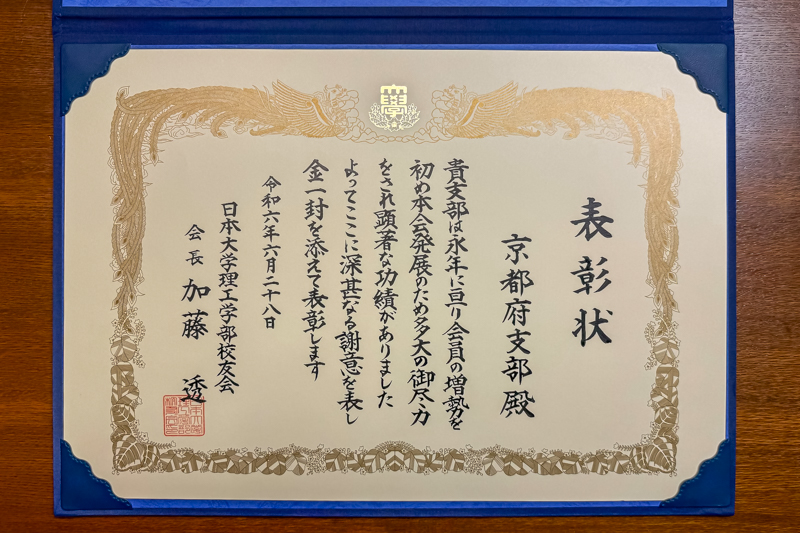 表彰状
京都府支部殿
貴支部は永年に亘り会員の増勢を
初め本会発展のため多大の御尽力
をされ顕著な功績がありました
よってここに深甚なる謝意を表し
金一封を添えて表彰します
令和六年六月二十八日
日本大学理工学部校友会
会長 加藤 透